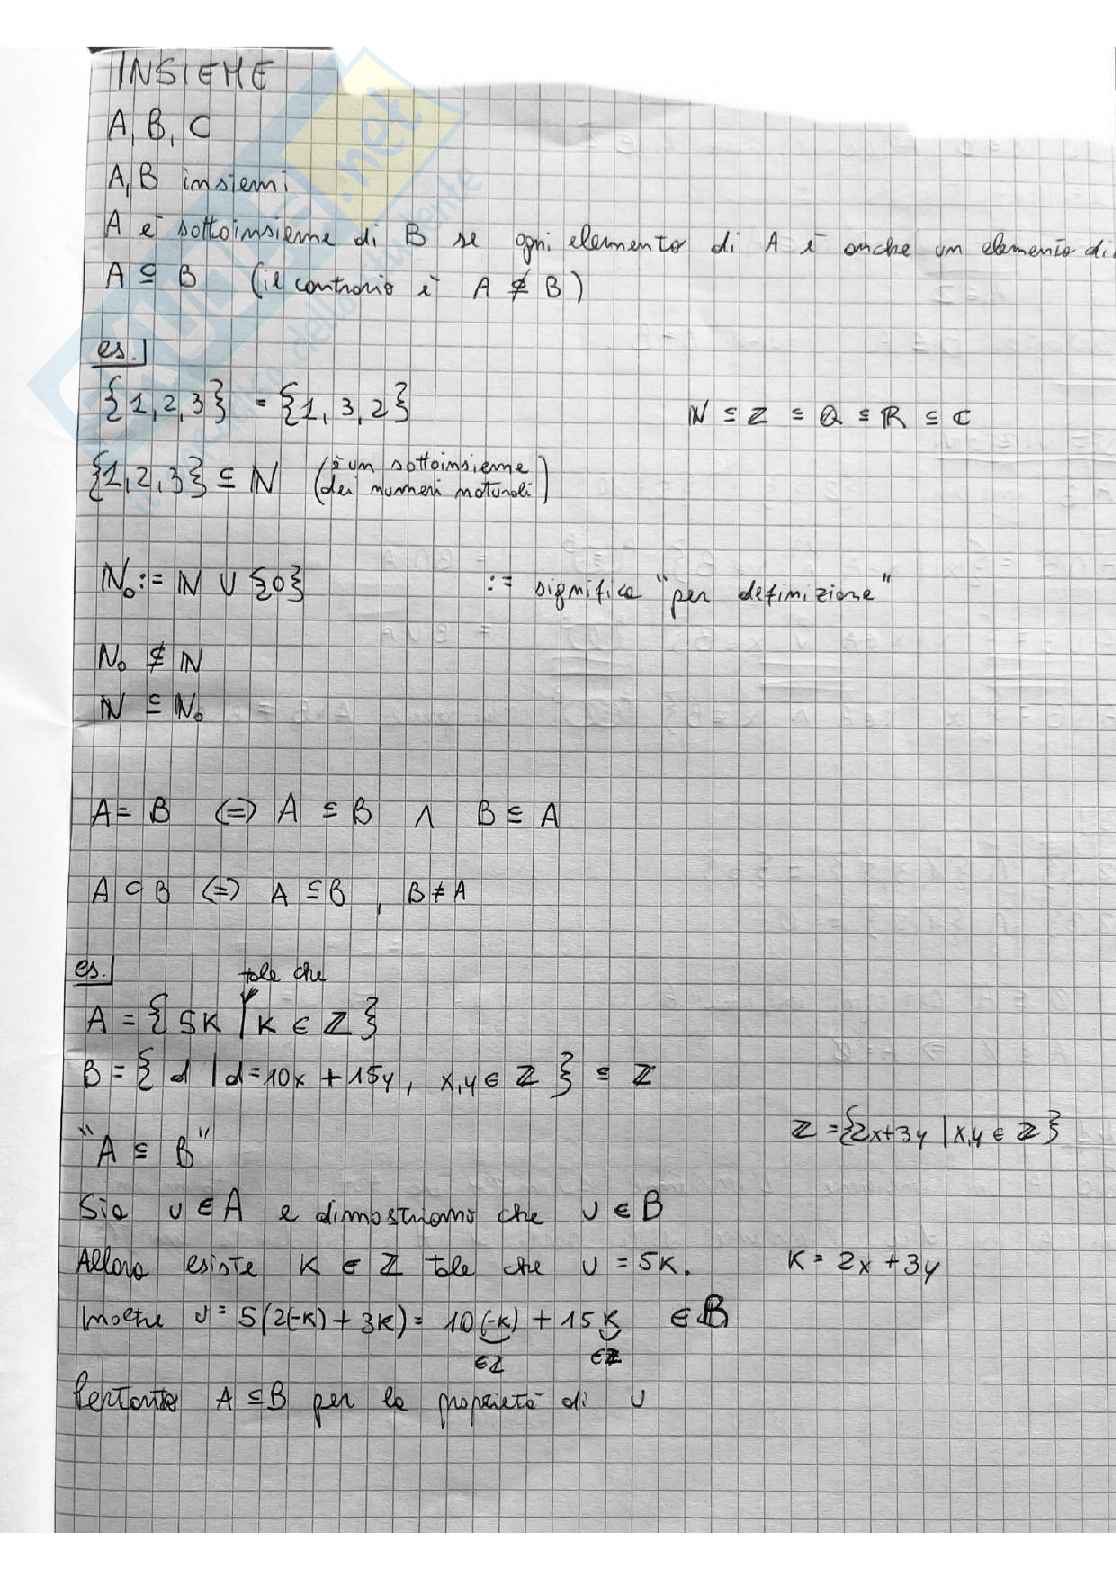 INSIEME
A, B, C
A, B insiemi
A è sottoinsieme di B se ogni elemento di A è anche un elemento di
A ⊆ B (il contrario è A ⊈ B)
es.
{1, 2, 3} = {1, 3, 2}
ℕ ⊆ ℤ ⊆ ℚ ⊆ ℝ ⊆ ℂ
{1, 2, 3} ⊆ ℕ (è un sottoinsieme dei numeri naturali)
ℕ₀ := ℕ ∪ {0} := significa "per definizione"
ℕ₀ ⊈ ℕ
ℕ ⊆ ℕ₀
A = B ⇔ A ⊆ B ∧ B ⊆ A
A ⊂ B ⇔ A ⊆ B , B ≠ A
es.
tale che
A = {5K | K ∈ ℤ}
B = {d | d = 10x + 15y, x,y ∈ ℤ} ⊆ ℤ
ℤ = {2x+3y | x,y ∈ ℤ}
"A ⊆ B"
Sia υ ∈ A e dimostriamo che υ ∈ B
Allora esiste K ∈ ℤ tale che υ = 5K. K = 2x + 3y
Inoltre υ = 5(2(-K) + 3K) = 10(-K) + 15K ∈ B
∈ℤ ∈ℤ
Pertanto A ⊆ B per la proprietà di υ